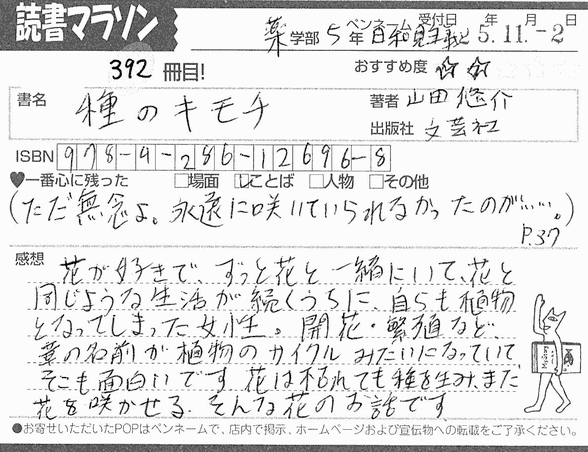 読書マラソン
薬 学部 5 年 ペンネーム 日和見主義 受付日 年 月 日
5.11.-2
392 冊目! おすすめ度 ☆☆
書名 種のキモチ 著者 山田悠介
出版社 文芸社
ISBN 978-4-286-12696-8
♥一番心に残った □場面 ☑ことば □人物 □その他
(ただ無念よ。永遠に咲いていられなかったのが…。)
P.37
感想 花が好きで、ずっと花と一緒にいて、花と
同じような生活が続くうちに、自らも植物
となってしまった女性。開花・繁殖など、
章の名前が植物のサイクルみたいになっていて
そこも面白いです。花は枯れても種を生み、まだ
花を咲かせる。そんな花のお話です
●お寄せいただいたPOPはペンネームで、店内で掲示、ホームページおよび宣伝物への転載をご了承ください。